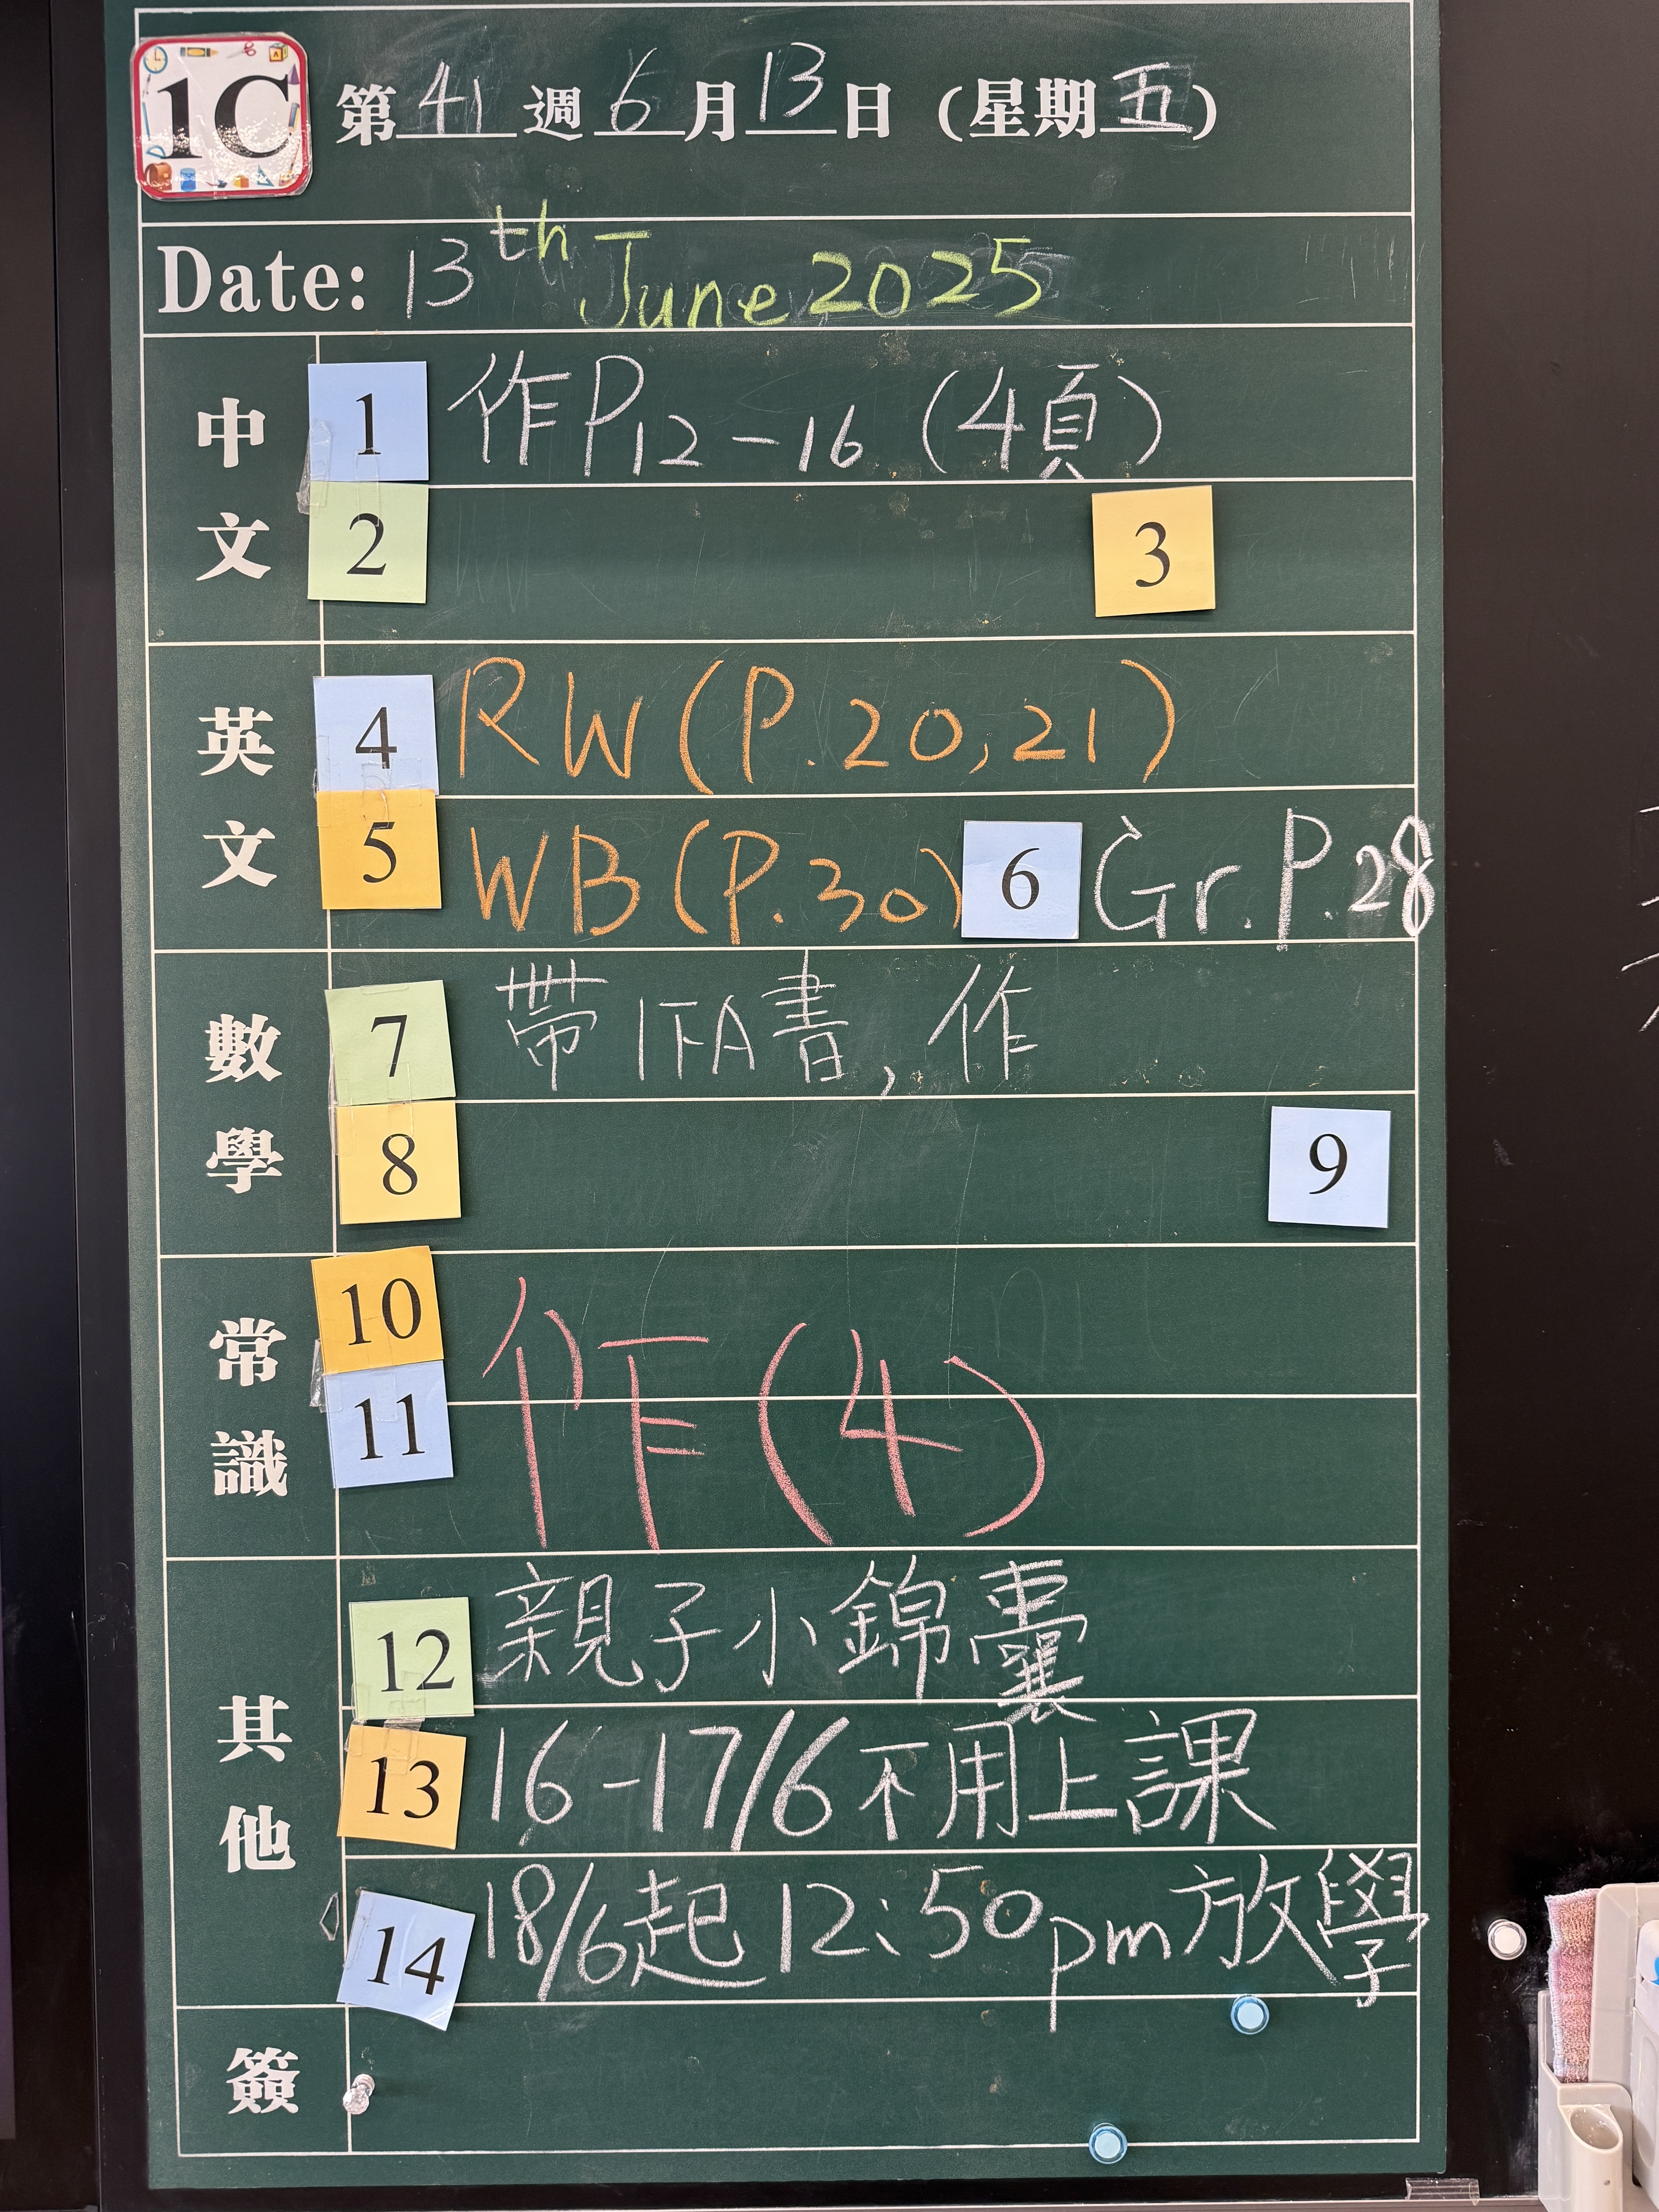 1C 第41週6月13日(星期五)
Date: 13th June 2025
中文
1 作P12-16 (4頁)
2 3
英文
4 RW(P.20,21)
5 WB(P.30) 6 Gr.P.28
數學
7 帶1下A書,作
8 9
常識
10
11 作(4)
其他
12 親子小錦囊
13 16-17/6不用上課
14 18/6起12:50pm放學
簽